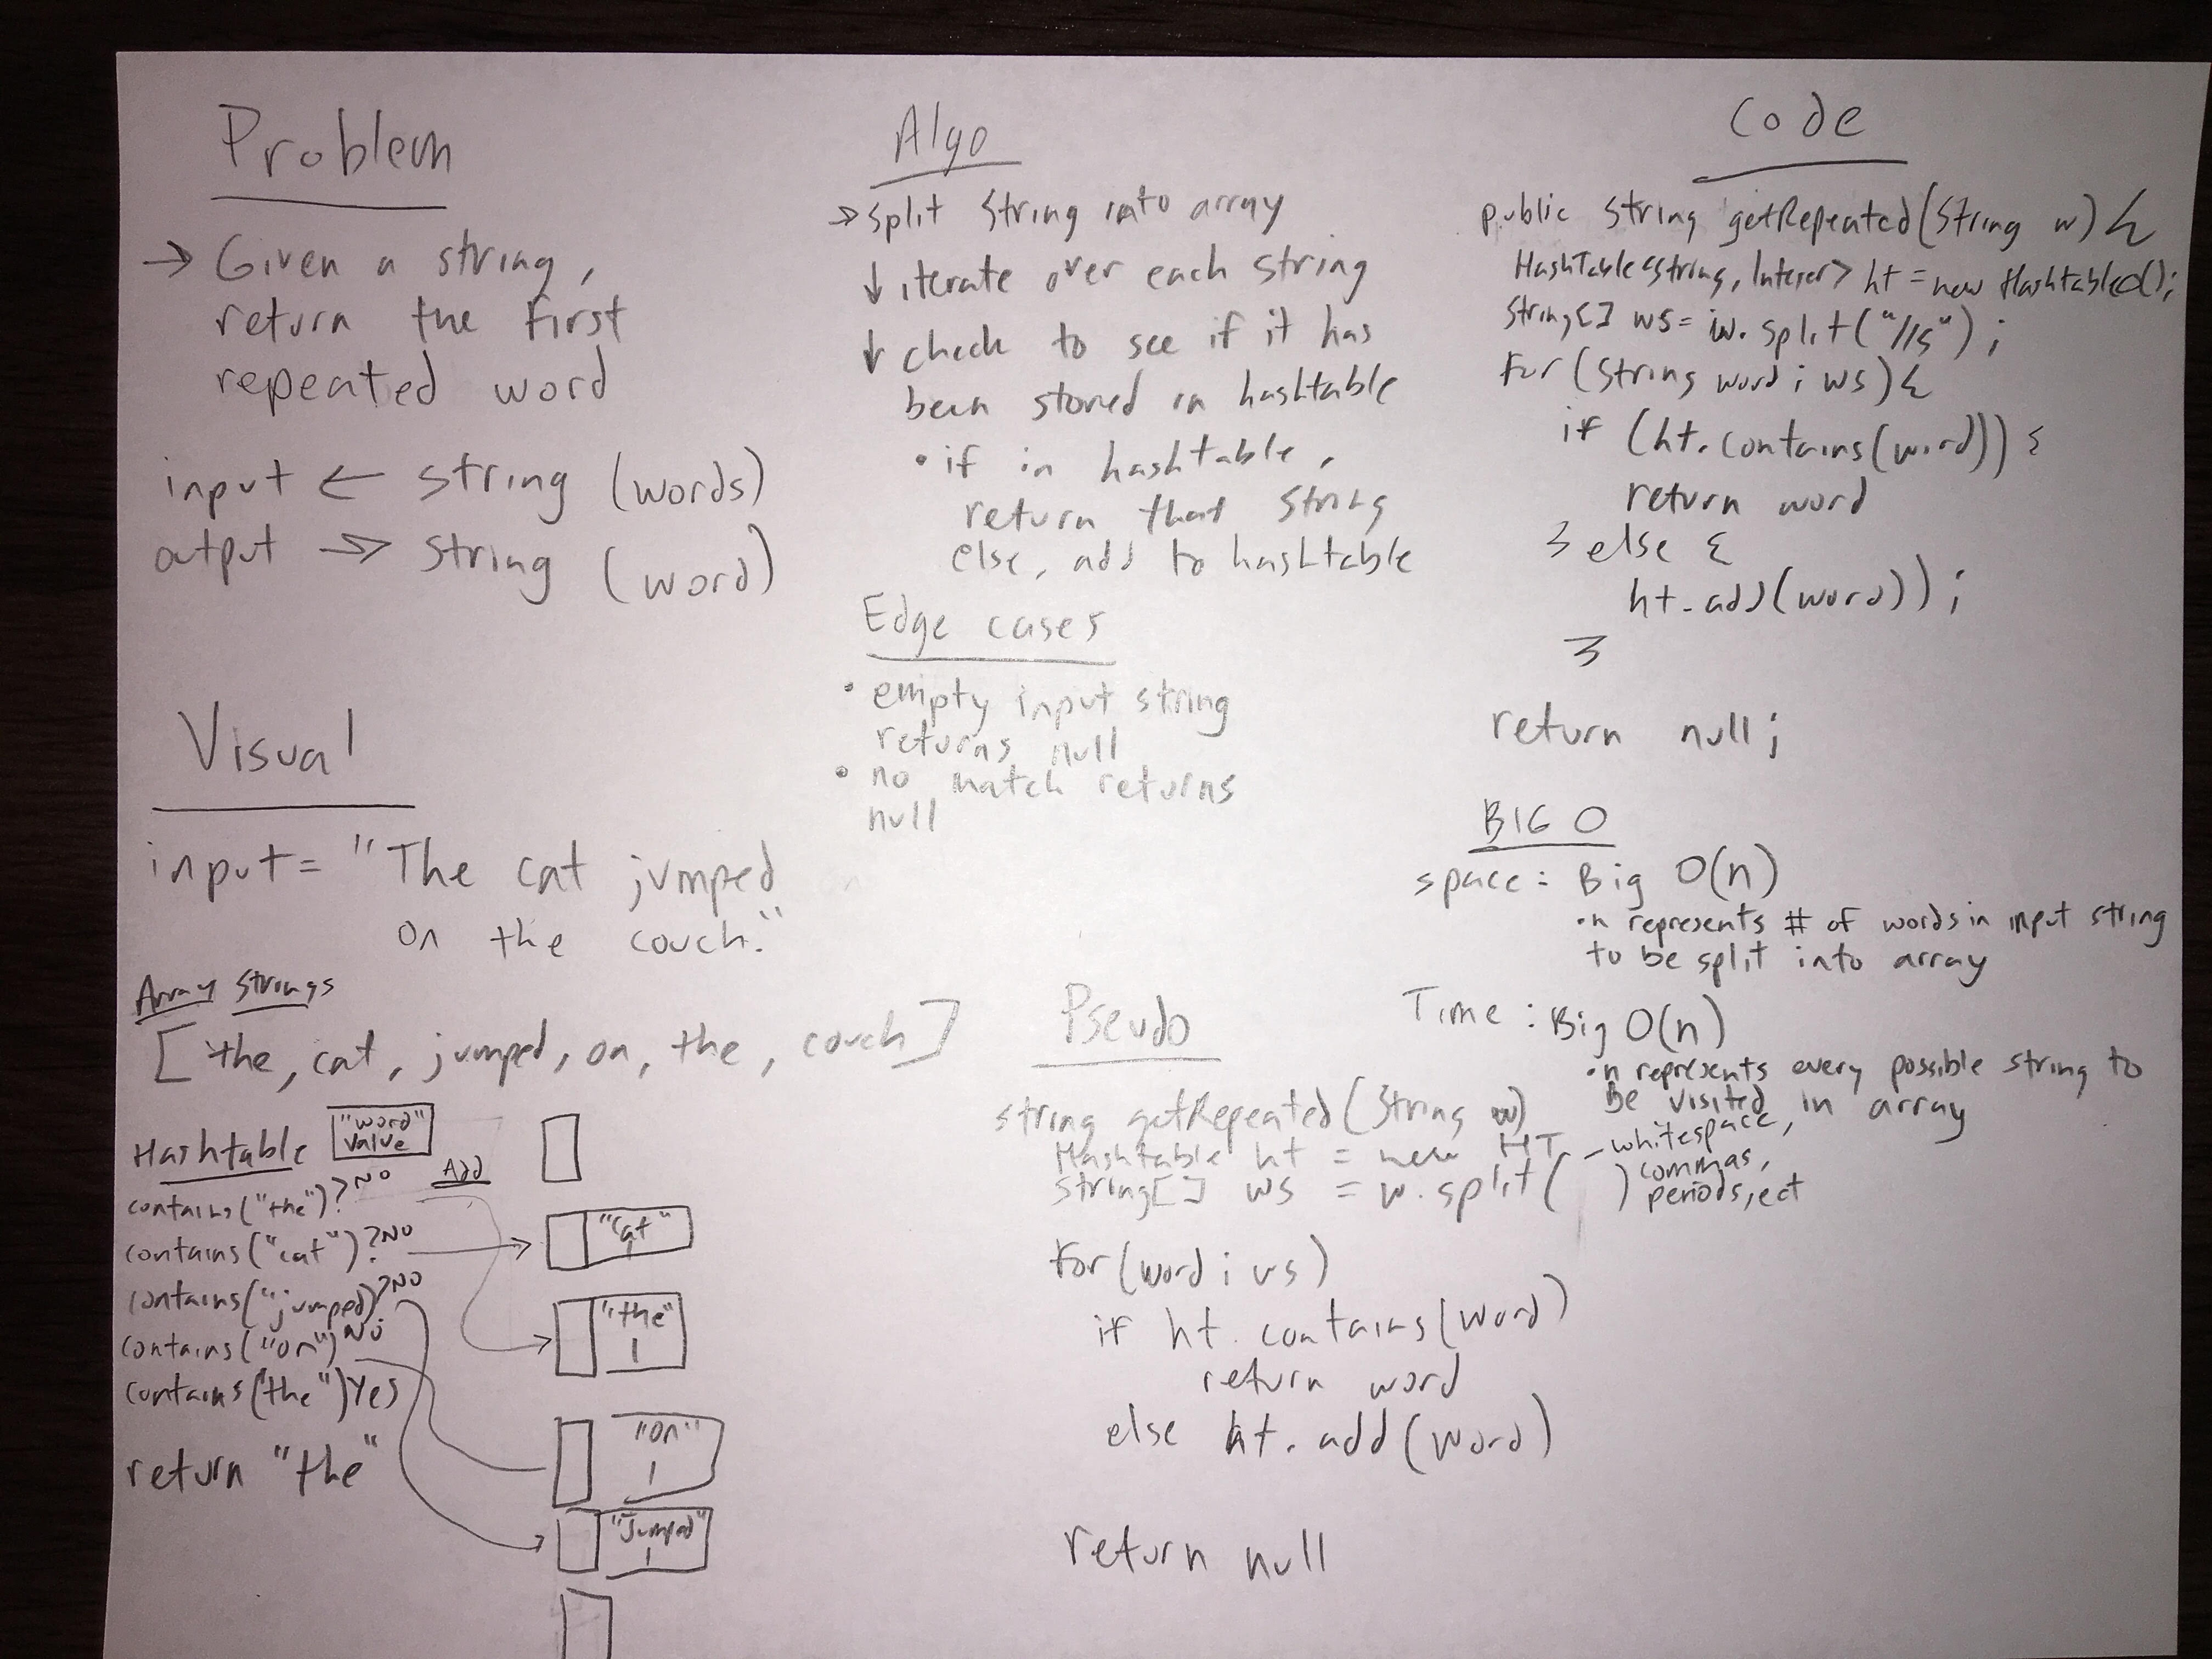 Problem
→ Given a string,
return the first
repeated word
input ← string (words)
output → string (word)
Visual
input = "The cat jumped
on the couch."
Array strings
[the, cat, jumped, on, the, couch]
Hashtable
"word"
value
Add
contains("the")? NO
contains("cat")? NO
contains("jumped)? NO
contains("on") NO
contains("the") Yes
return "the"
"Cat"
1
"the"
1
"on"
1
"Jumped"
1
Algo
→ split string into array
↓ iterate over each string
↓ check to see if it has
been stored in hashtable
• if in hashtable,
return that string
else, add to hashtable
Edge cases
• empty input string
returns null
• no match returns
null
Pseudo
string getRepeated(String w)
Hashtable ht = new HT
string[] ws = w.split( )
- whitespace,
commas,
periods, ect
for (word : ws)
if ht.contains(word)
return word
else ht.add(word)
return null
Code
public string getRepeated(String w) {
HashTable<string, Integer> ht = new Hashtable<>();
string[] ws = w.split("//s");
for (string word : ws) {
if (ht.contains(word)) {
return word
} else {
ht.add(word));
}
return null;
BIG O
space: Big O(n)
• n represents # of words in input string
to be split into array
Time: Big O(n)
• n represents every possible string to
be visited in array